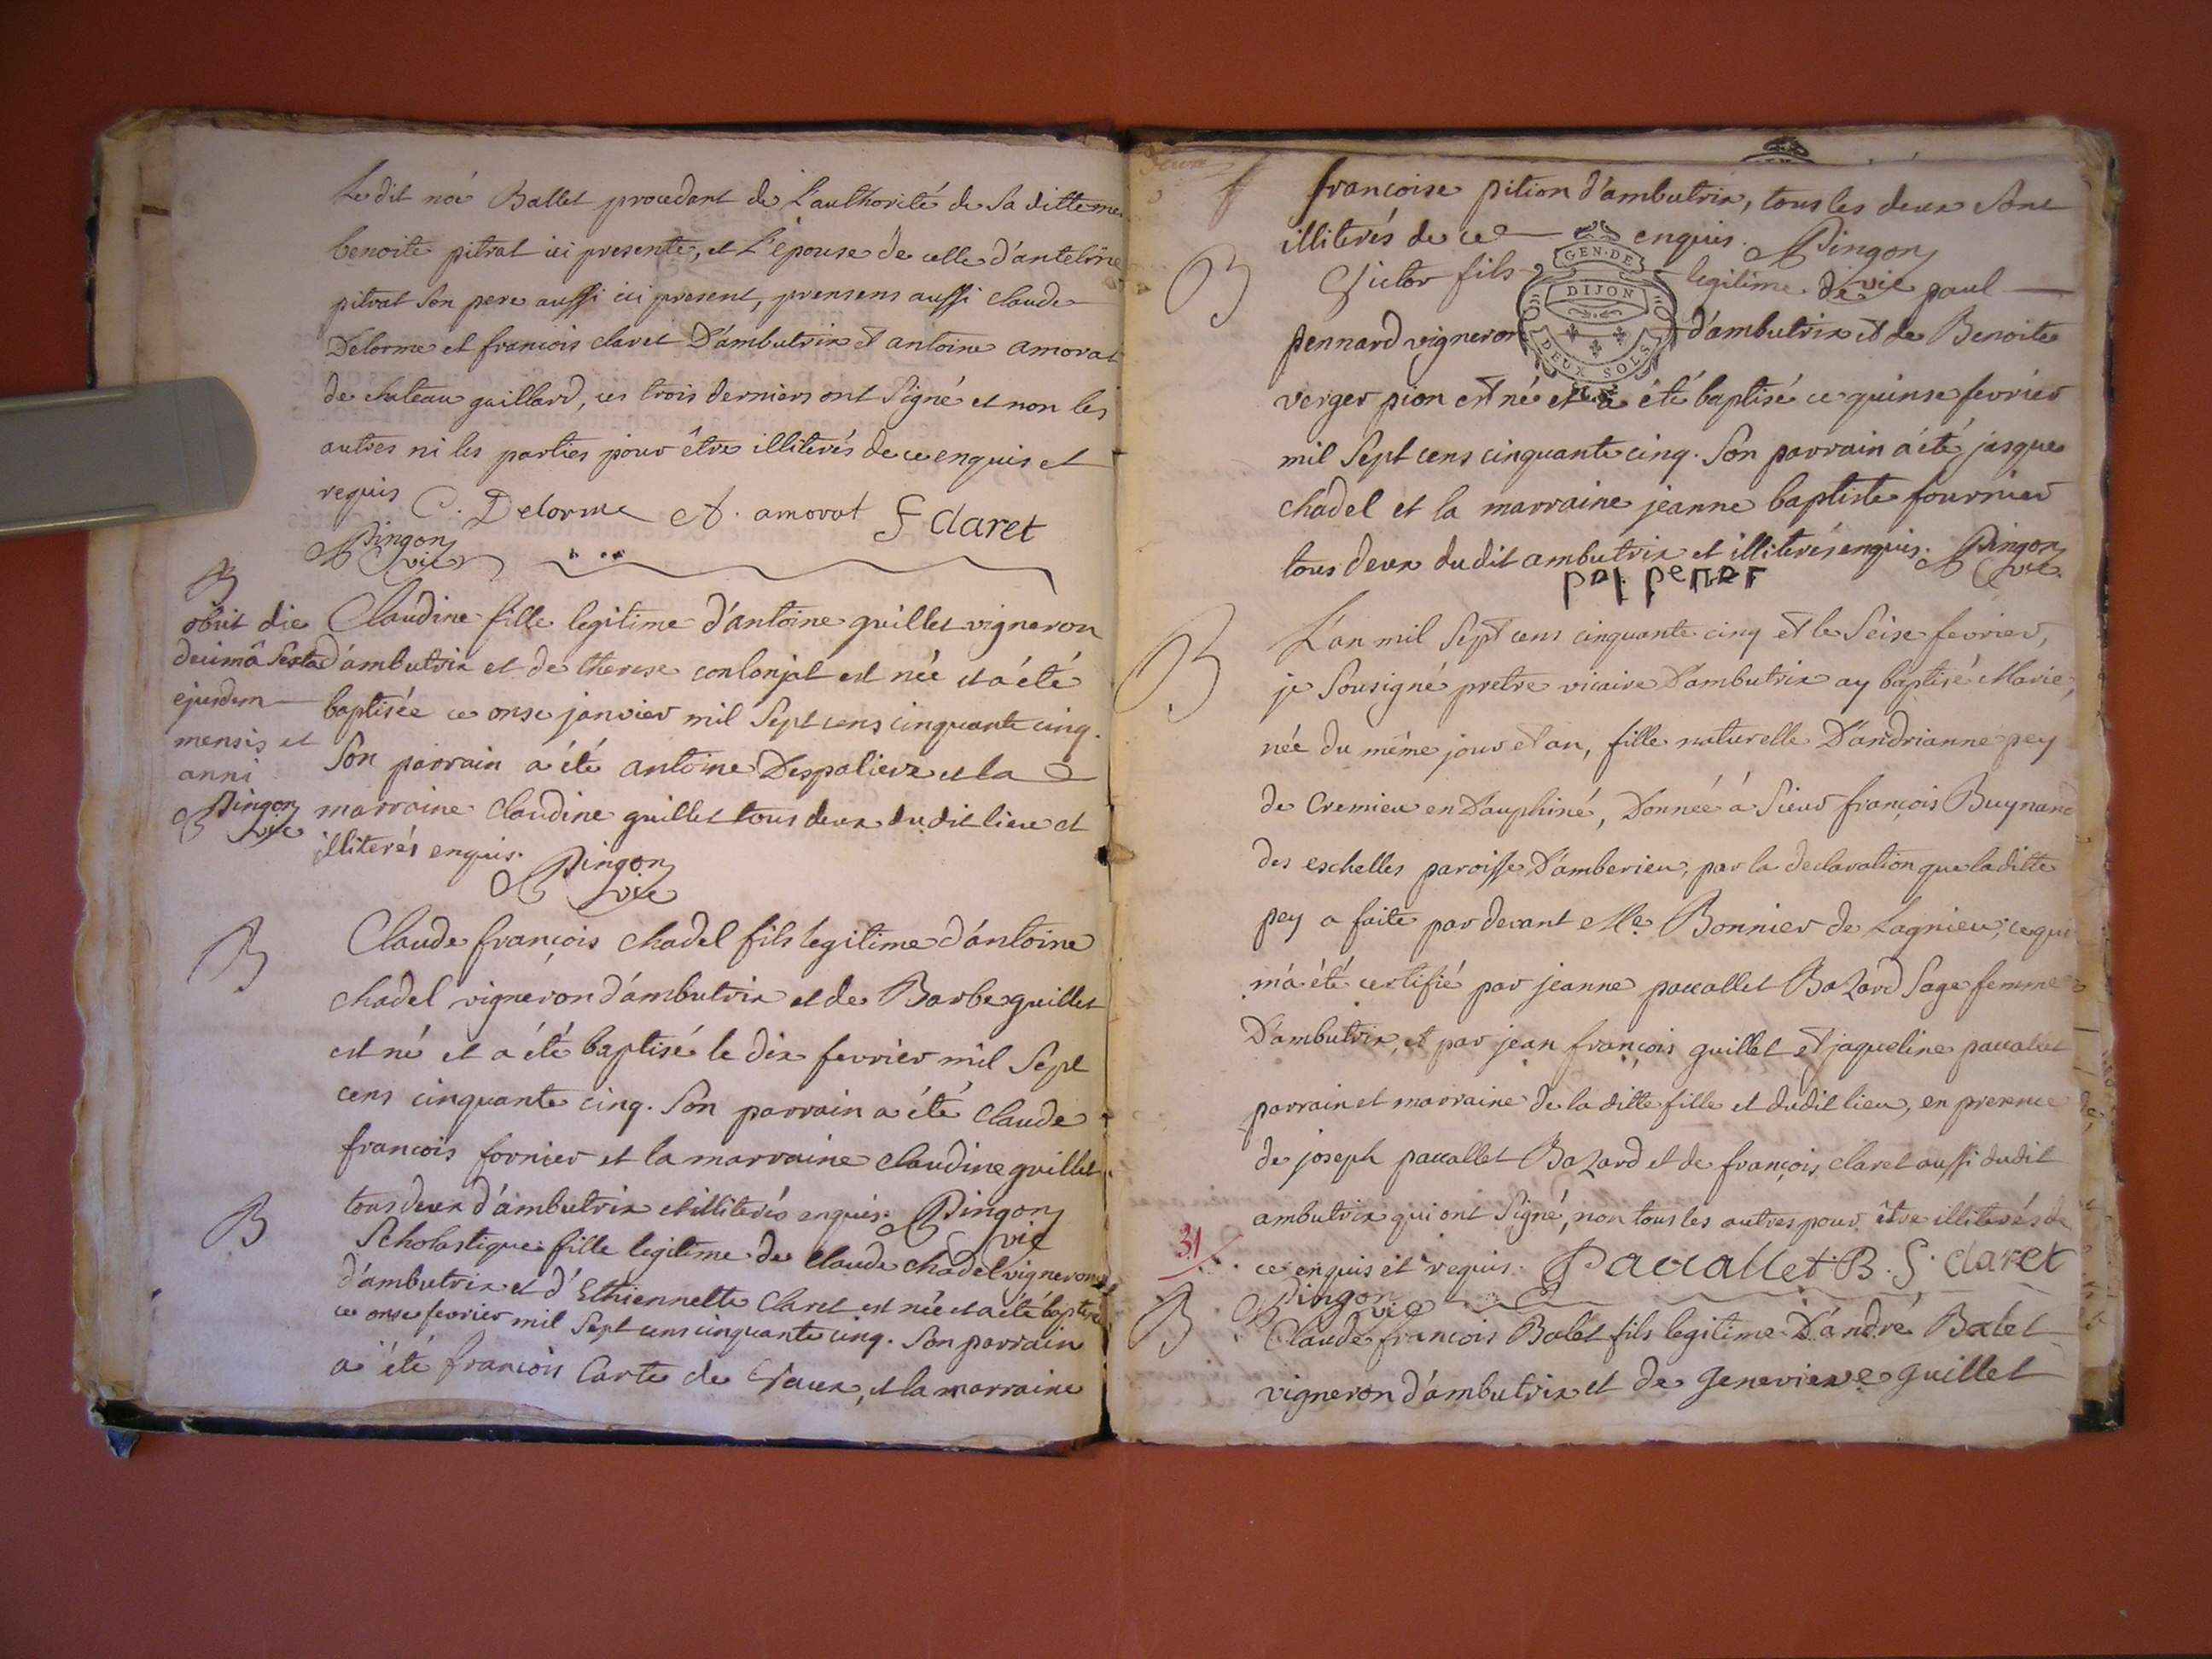 Le dit noé Ballet procedant de L'authorité de sa ditte mer
benoite pitrat ici presente, et L'épouse de celle d'antelme
pitrat son pere aussi ici present, presens aussi claude
Delorme et francois claret D'ambutrix et antoine amorat
de chateau gaillard, ces trois derniers ont signé et non les
autres ni les parties pour être illiterés de ce enquis et
requis C. Delorme A. amorat F Claret
Pingon
vic
B
obiit die
decimâ sexta
ejusdem
mensis et
anni
Pingon
vic
Claudine fille legitime d'antoine guillet vigneron
d'ambutrix et de therese conlonjat est née et a été
baptisée ce onse janvier mil sept cens cinquante cinq.
Son parrain a été antoine Despalieux et la
marraine Claudine guillet tous deux du dit lieu et
illiterés enquis. Pingon
vic
B
Claude françois chadel fils legitime d'antoine
chadel vigneron d'ambutrix et de Barbe guillet
est né et a été baptisé le dix fevrier mil sept
cens cinquante cinq. Son parrain a été claude
francois fornier et la marraine claudine guillet
tous deux d'ambutrix et illiterés enquis. Pingon
vic
B
Scholastique fille legitime de Claude chadel vigneron
d'ambutrix et d'Ethiennette Claret est née et a été baptisée
ce onse fevrier mil sept cens cinquante cinq. Son parrain
a été francois Carte de Vaux, et la marraine
francoise pition d'ambutrix, tous les deux sont
illiterés de ce enquis. Pingon
vic
GEN. DE
DIJON
DEUX SOLS
B
Victor fils legitime de paul
pennard vigneron d'ambutrix et de Benoite
verger pion est né et a été baptisé ce quinse fevrier
mil sept cens cinquante cinq. Son parrain a été jasque
chadel et la marraine jeanne baptiste fournier
tous deux du dit ambutrix et illiterés enquis. Pingon
vic
B
L'an mil sept cens cinquante cinq et le seise fevrier,
je sousigné pretre vicaire D'ambutrix ay baptisé Marie,
née du même jour et an, fille naturelle D'andrianne pey
de Cremieu en Dauphiné, Donnée à sieur françois Buynand
des eschelles paroisse D'amberieu, par la declaration que laditte
pey a faite par devant Me. Bonnier de Lagnieu; ce qui
m'a été certifié par jeanne paccallet Bazard sage femme
D'ambutrix, et par jean françois guillet et jaqueline paccalet
parrain et marraine de la ditte fille et dudit lieu, en presence
de joseph paccallet Bazard et de françois claret aussi dudit
ambutrix qui ont signé, non tous les autres pour être illiterés de
31
ce enquis et requis. Paccallet B. f. claret
Pingon
vic
B
Claude francois Balet fils legitime D'andré Balet
vigneron d'ambutrix et de genevieve guillet